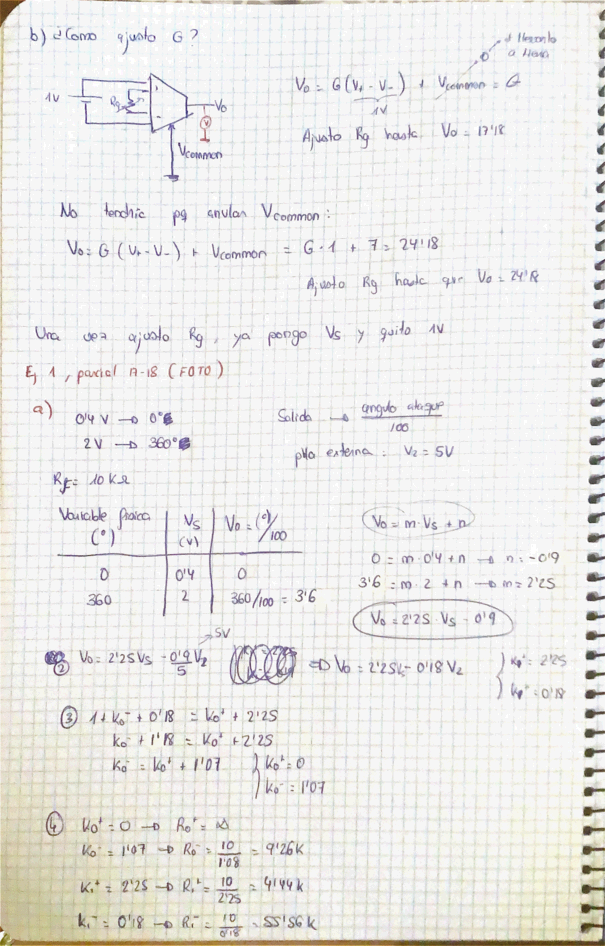 b) ¿Como ajusto G?
1V
Rg
Vo
Vcommon
V0 = G(V+ - V-) + Vcommon = G
1V
Ajusto Rg hasta V0 = 17'18
No tendría pq anular Vcommon:
V0 = G (V+ - V-) + Vcommon = G·1 + 7 = 24'18
Ajusto Rg hasta que V0 = 24'18
Una vez ajusto Rg, ya pongo Vs y quito 1V
Ej 1, parcial A-18 (FOTO)
a)
0'4 V → 0º
2 V → 360º
Salida → angulo ataque / 100
pila externa: V2 = 5V
Rf = 10 kΩ
Variable física (º) | Vs (V) | V0 = (º)/100
0 | 0'4 | 0
360 | 2 | 360/100 = 3'6
V0 = m·Vs + n
0 = m·0'4 + n → n = -0'9
3'6 = m·2 + n → m = 2'25
V0 = 2'25·Vs - 0'9
5V
② V0 = 2'25Vs - 0'9/5 V2 ⇒ V0 = 2'25Vs - 0'18V2 { K1+ = 2'25
K1- = 0'18
③ 1 + K0- + 0'18 = K0+ + 2'25
K0- + 1'18 = K0+ + 2'25
K0- = K0+ + 1'07 { K0+ = 0
K0- = 1'07
④ K0+ = 0 → R0+ = ∞
K0- = 1'07 → R0- = 10/1'08 = 9'26k
K1+ = 2'25 → R1+ = 10/2'25 = 4'44k
K1- = 0'18 → R1- = 10/0'18 = 55'56k